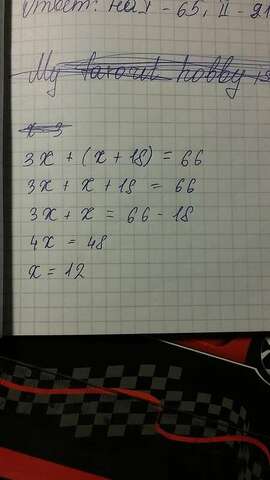 Ответ: на I - 65, II - 21
My favorit hobby is
x = 3
3x + (x + 18) = 66
3x + x + 18 = 66
3x + x = 66 - 18
4x = 48
x = 12